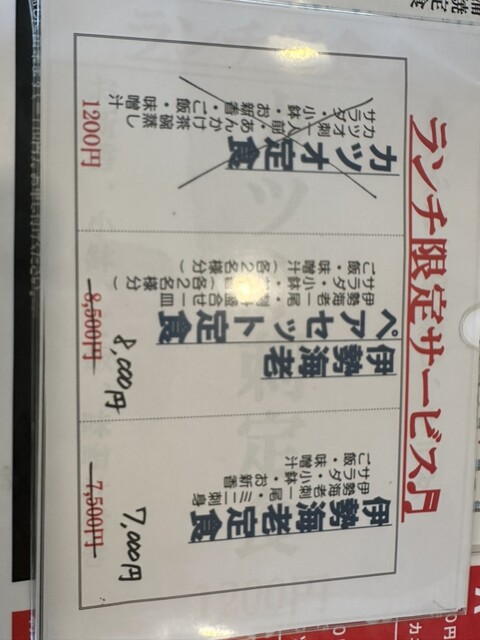 ランチ限定サービス♬
カツオ定食
カツオ刺一人前・あんかけ茶碗蒸し
サラダ・小鉢・お新香・ご飯・味噌汁
1200円
伊勢海老
ペアセット定食
伊勢海老二尾・盛合せ一皿
サラダ・小鉢・(各2名様分)
ご飯・味噌汁(各2名様分)
8,500円
8,000円
伊勢海老定食
伊勢海老刺一尾・ミニ刺身
サラダ・小鉢・お新香
ご飯・味噌汁
7,500円
7,000円